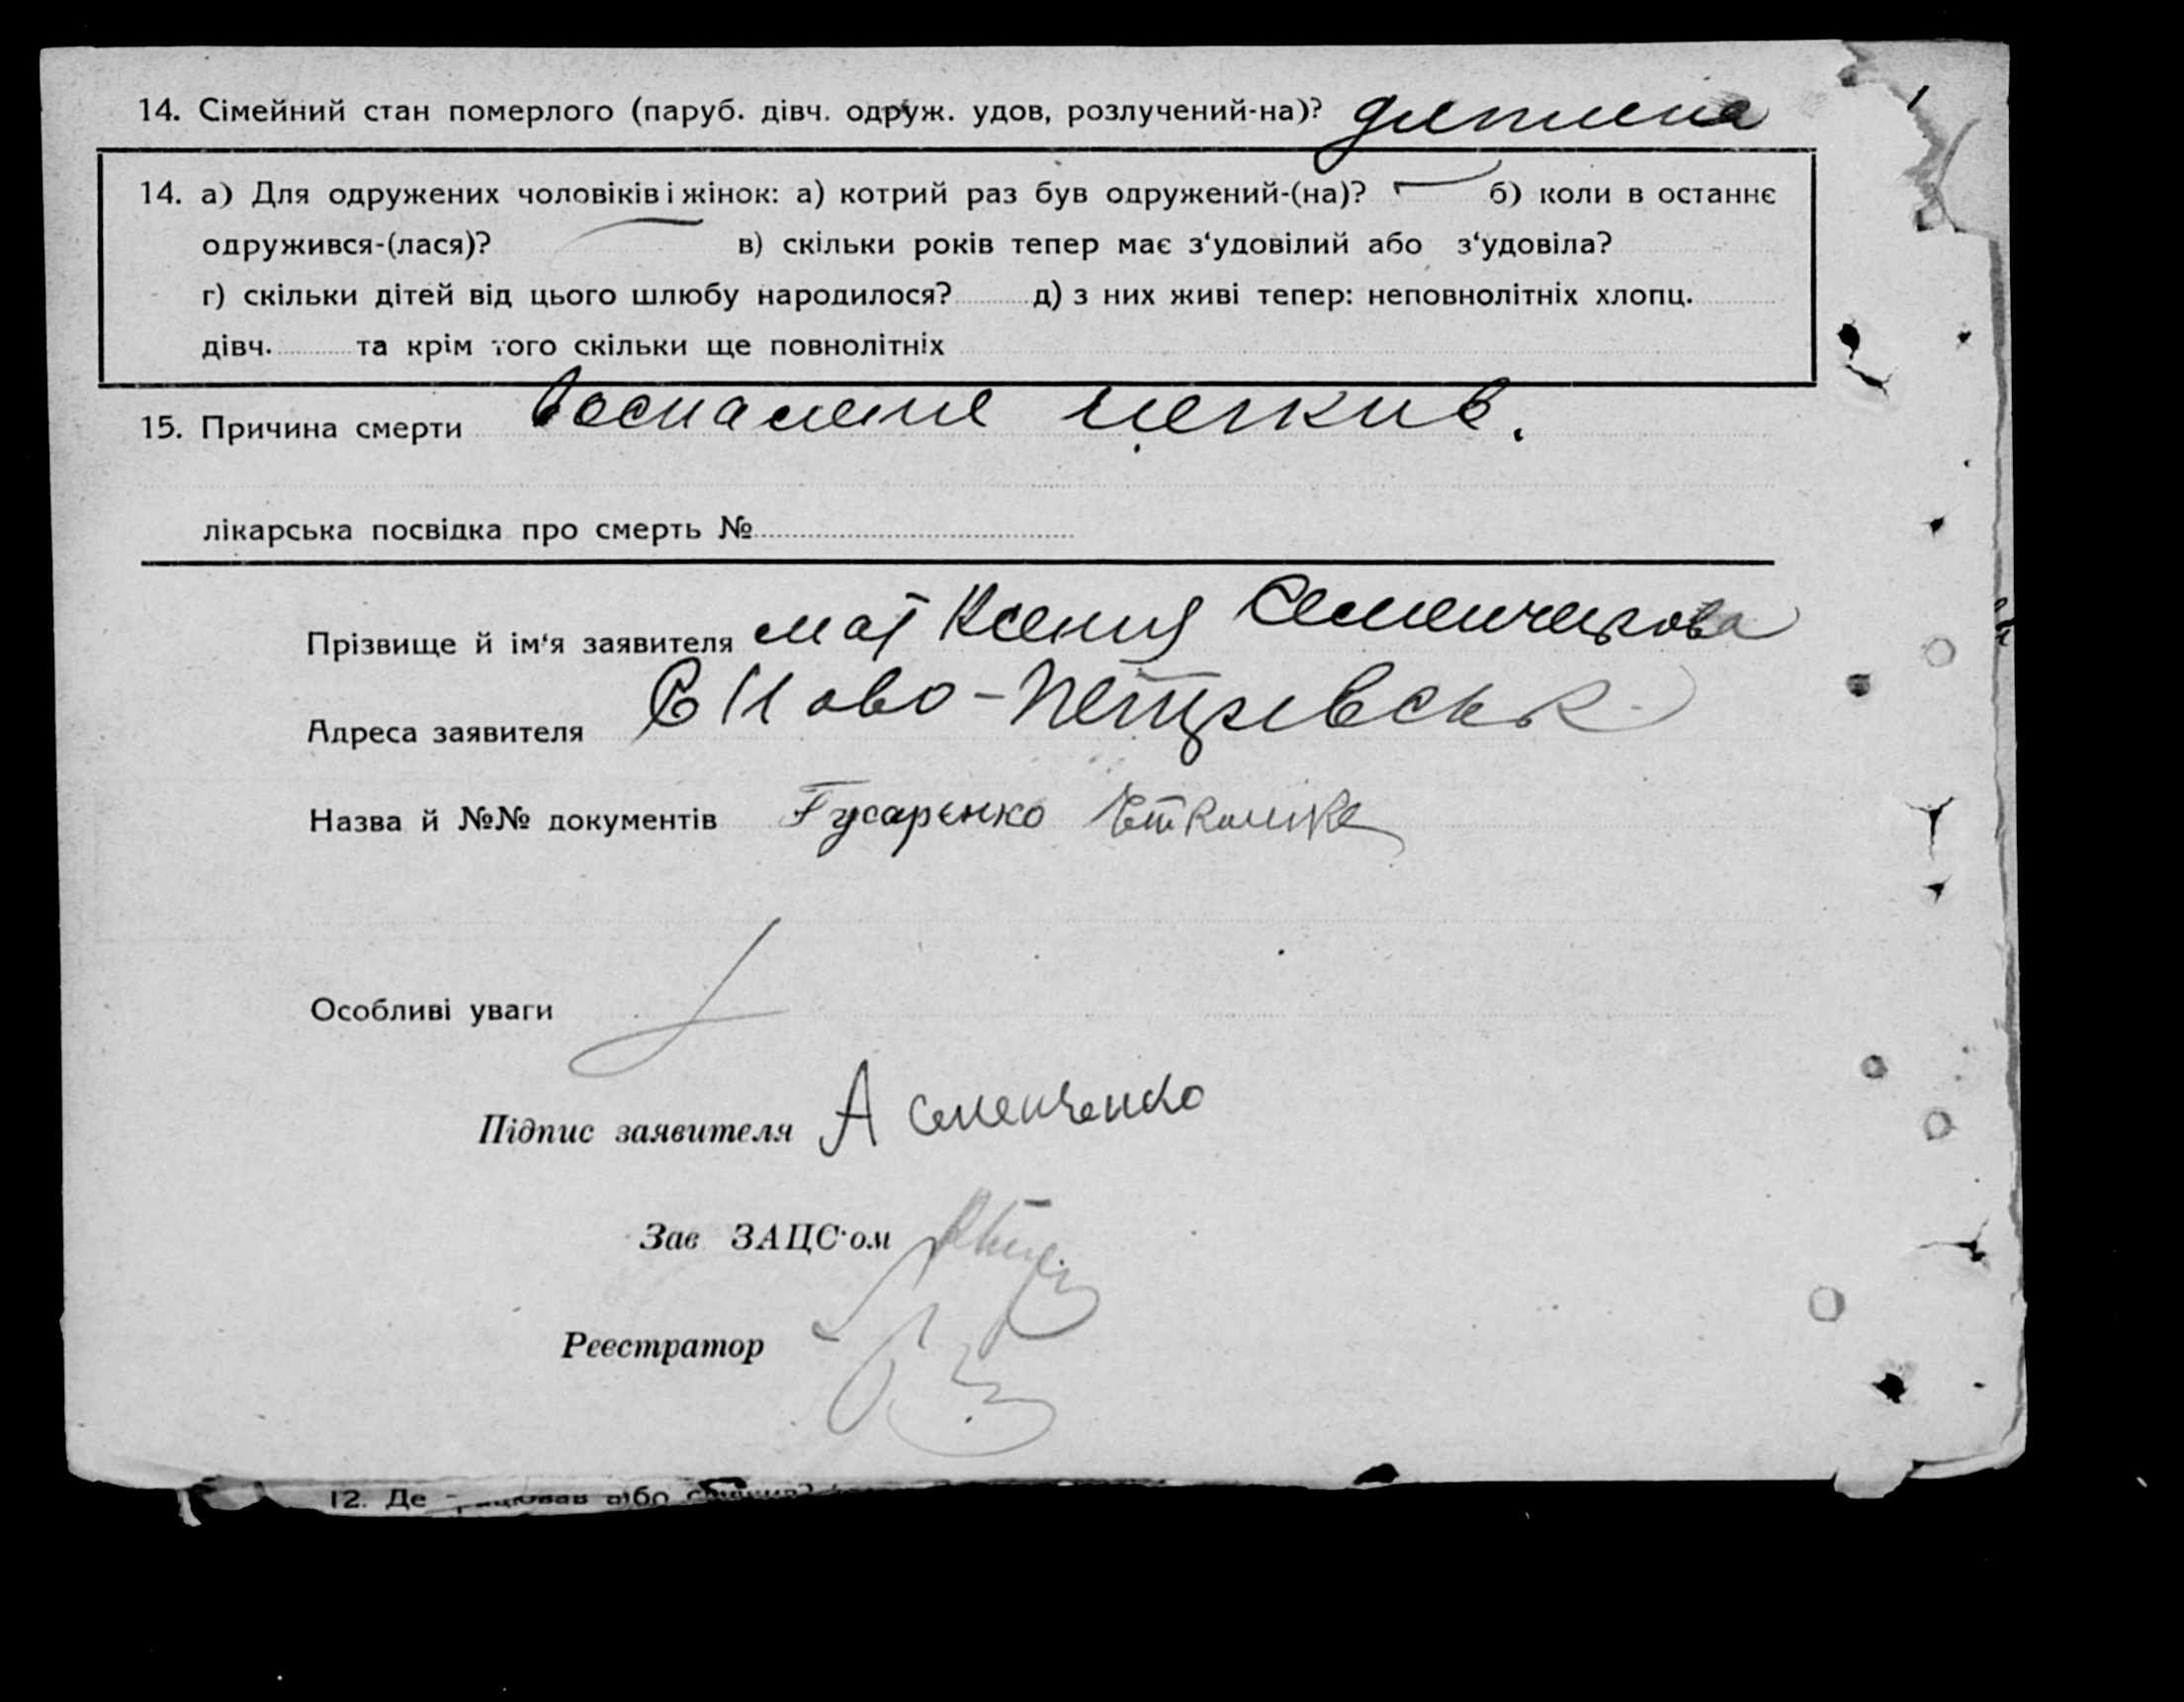 14. Сімейний стан померлого (паруб. дівч. одруж. удов, розлучений-на)? дитина
14. а) Для одружених чоловіків і жінок: а) котрий раз був одружений-(на)? — б) коли в останнє
одружився-(лася)? — в) скільки років тепер має з‘удовілий або з‘удовіла?
г) скільки дітей від цього шлюбу народилося? д) з них живі тепер: неповнолітніх хлопц.
дівч. та крім того скільки ще повнолітніх
15. Причина смерти Воспаление легкив.
лікарська посвідка про смерть №
Прізвище й ім‘я заявителя мат Ксения
Адреса заявителя С Ново-Петрівськ
Назва й №№ документів Гусаренко
Особливі уваги
Підпис заявителя А Семенченко
Зав ЗАЦС‘ом
Реєстратор
12. Де або